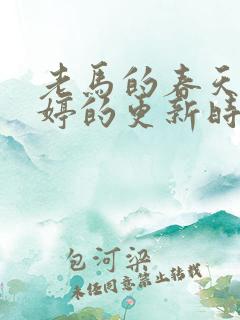 老馬的春天
婷的更新時
包河梁
未经同意禁止转载